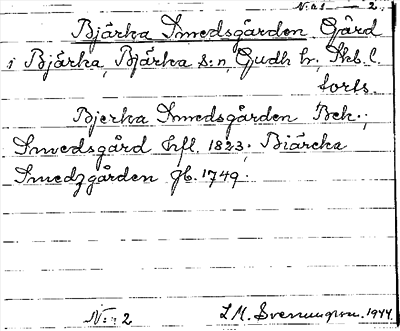 2.
Bjärka Smedsgården Gård
i Bjärka, Bjärka s:n, Gudh hr, Skb. l.
forts.
Bjerka Smedsgården Bek.;
Smedsgård hfl. 1823; Biärcka
Smedzgården jb. 1749.
N:r 2
L.M. Svenungsson. 1944.